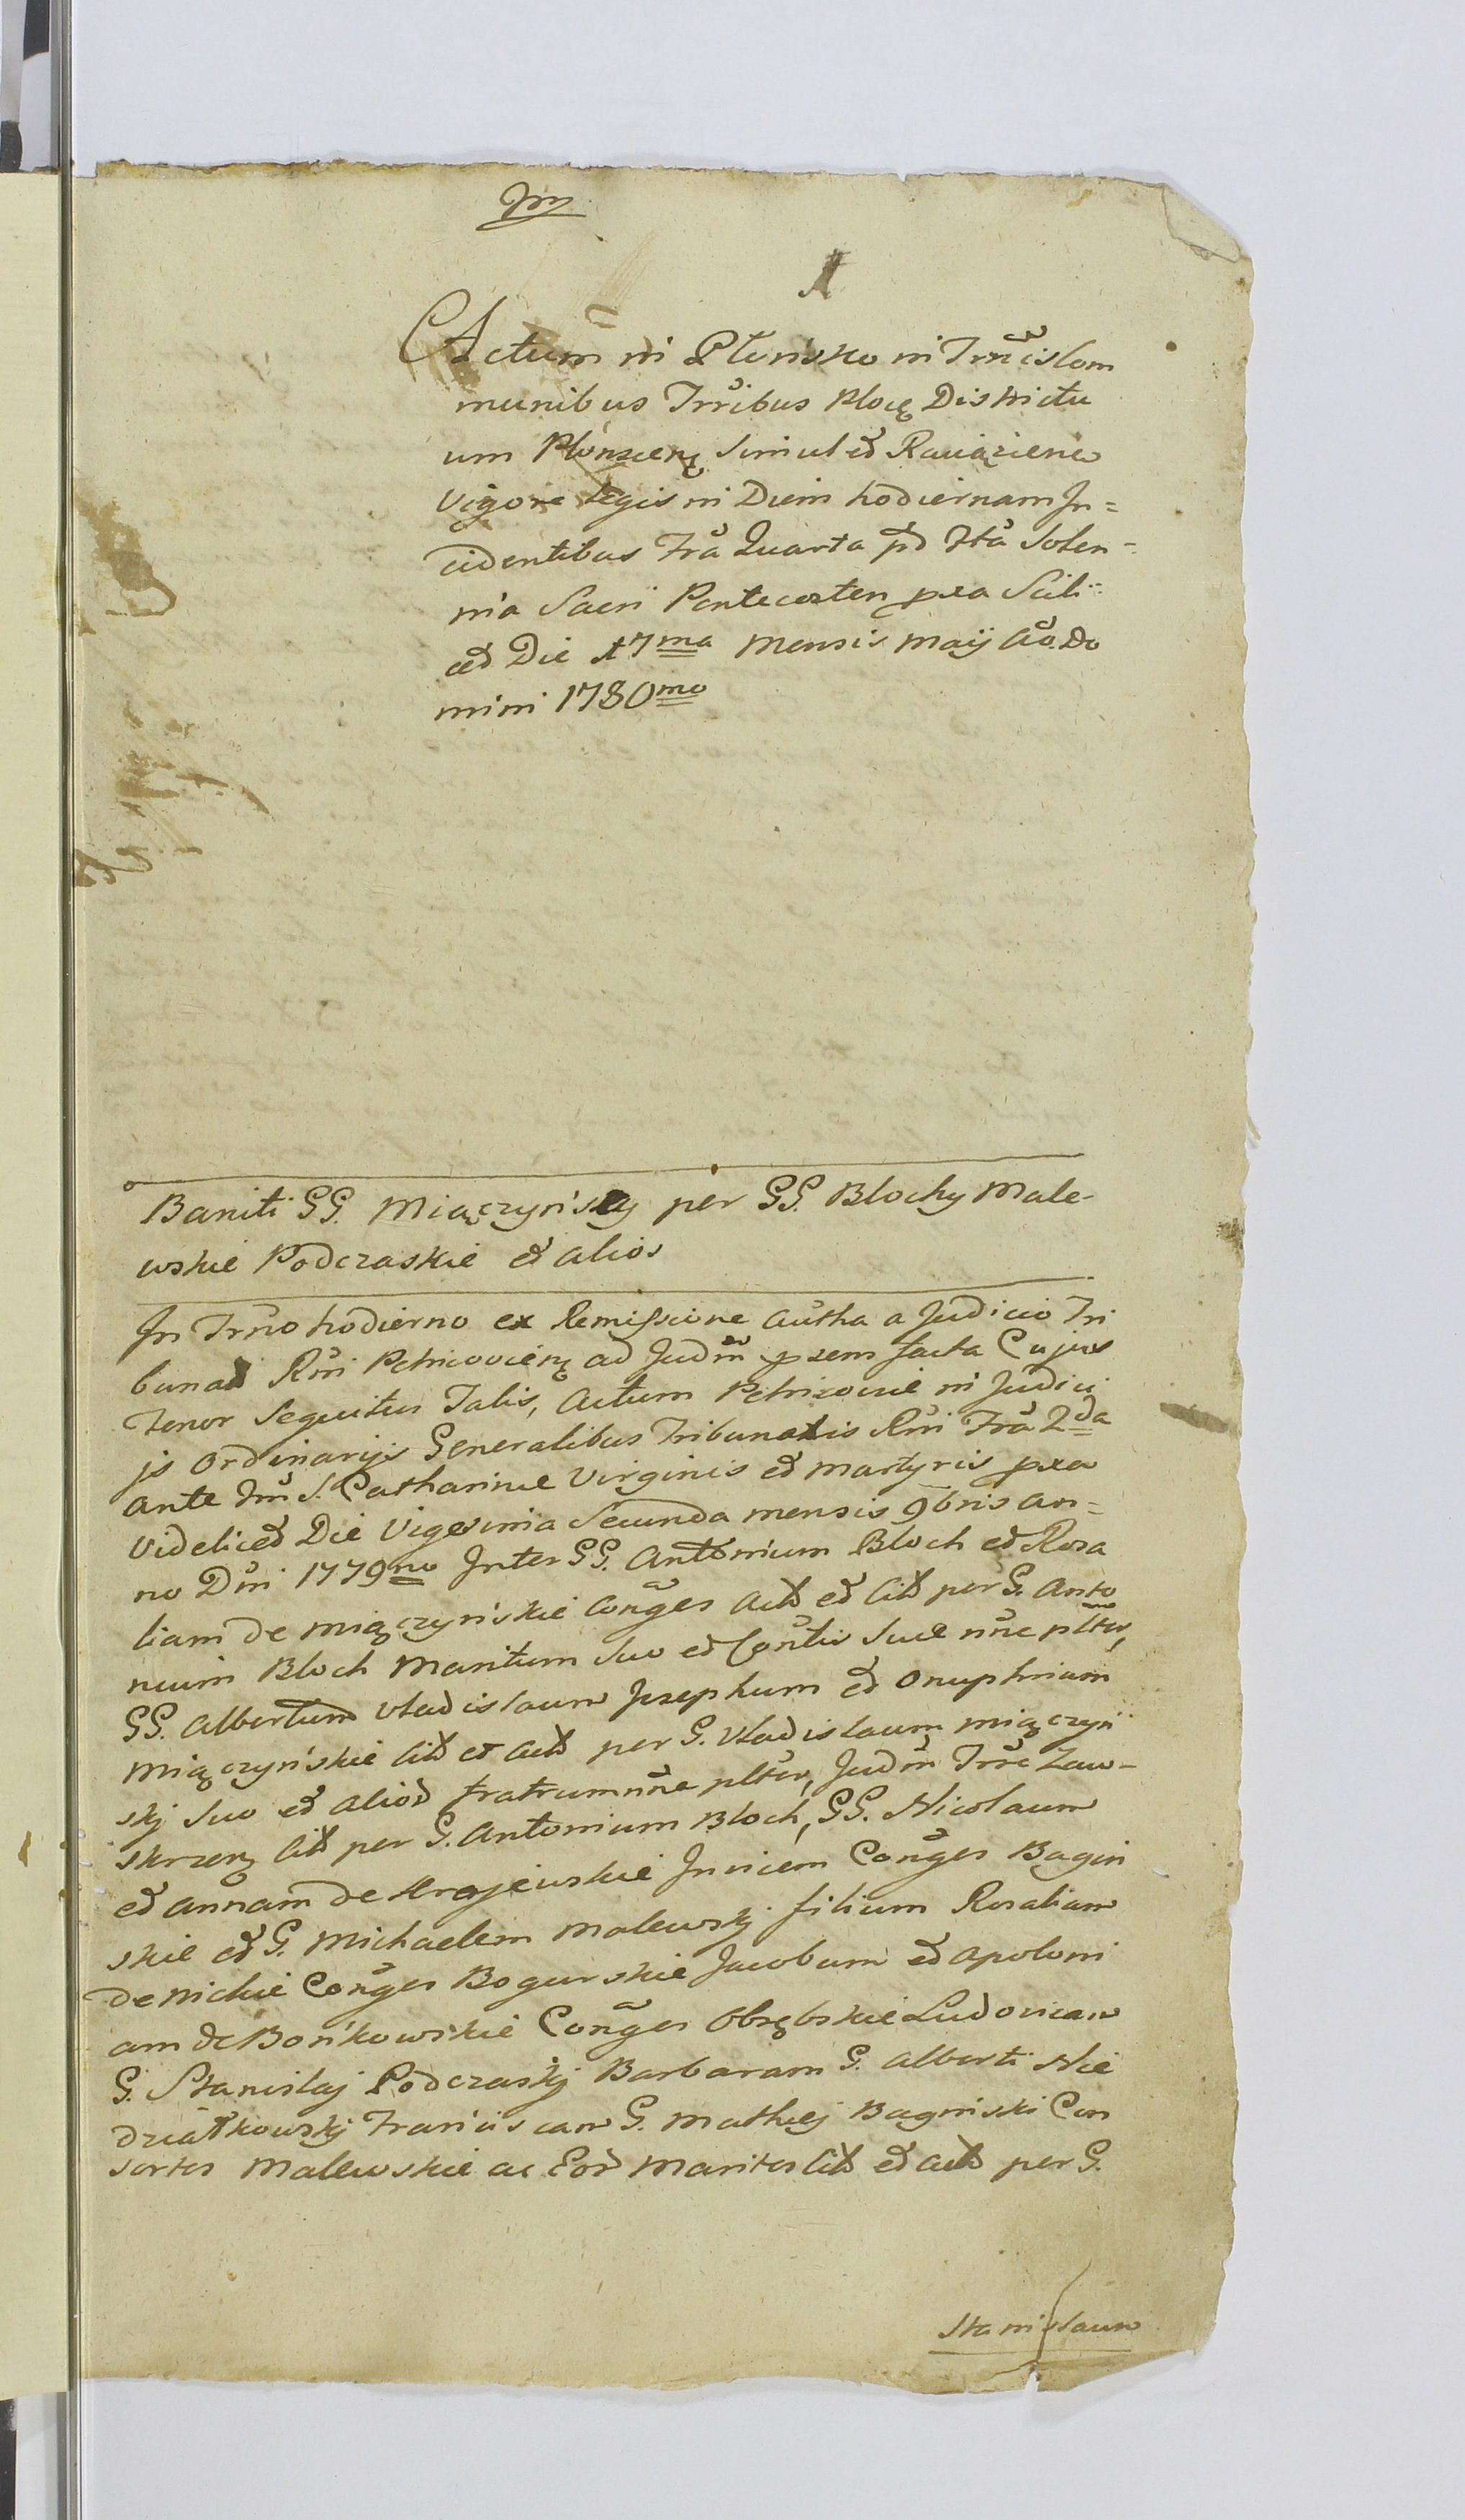 Actum in Płonsko in Trnis Com
munibus Trribus Ploc. Districtu
um Płonscen. Simul et Raciązien.
Vigore Legis in Diem hodiernam In=
cidentibus Fra Quarta pt Fta Solen=
nia Sacri Pentecosten pxa Scili=
cet Die 17ma Mensis Maij Ao. Do
mini 1780mo
Baniti GG. Miączyńscy per GG. Blochy Male-
wskie Podczaskie et alios
In Trno hodierno ex Remissione Autha a Judicio Tri
bunali Rni Petricovien. ad Judm psens facta Cujus
Tenor Sequitur Talis, Actum Petricoviæ in Judicij
js Ordinarijs Generalibus Tribunalis Rni Fra 2da
ante Fm S. Catharinæ Virginis et Martyris pxa
Videlicet Die Vigesima Secunda mensis 9bris An=
no Dni 1779no Inter GG. Antonium Bloch et Rosa
liam de Miączyńskie Conges Act et Cit per G. Anto
nium Bloch Maritum Suo et Contis Suæ nne plter,
GG. Albertum Vladislaum Josephum et Onuphrium
Miączyńskie Cit et Act per G. Vladislaum Miączyń
skj Suo et aliod fratrum nne plter, Judm Trre Zaw-
skrzen. Cit per G. Antonium Bloch, GG. Nicolaum
et Annam de Krajewskie Invicem Conges Bagin
skie et G. Michaelem Malewskj filium Rosaliam
de Nickie Conges Bogurskie Jacobum et Apoloni
am de Bońkowskie Conges Obrębskie Ludovicam
G. Stanislaj Podczaskj Barbaram G. Alberti Nie
działkowskj Franciscam G. Mathiej Baginski Con
sortes Malewskie ac Eord Maritos Cit et Act per G.
Stanislaum